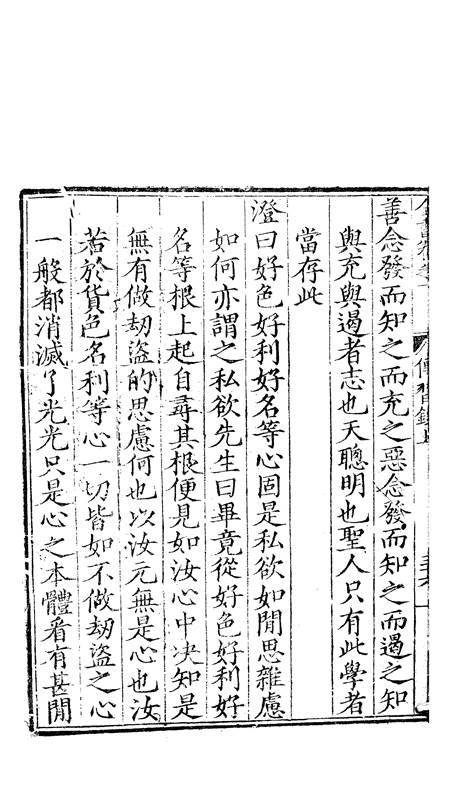 善念發而知之而充之惡念發而知之而遏之知
與充與遏者志也天聰明也聖人只有此學者
當存此
澄曰好色好利好名等心固是私欲如閒思雜慮
如何亦謂之私欲先生曰畢竟從好色好利好
名等根上起自尋其根便見如汝心中决知是
無有做劫盜的思慮何也以汝元無是心也汝
若於貨色名利等心一切皆如不做劫盜之心
一般都消滅了光光只是心之本體看有甚閒